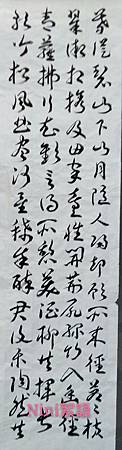 暮從碧山下山月隨人歸卻顧所來徑蒼蒼橫
翠微相攜及田家童稚開荊扉綠竹入幽徑
青蘿拂行衣歡言得所憩美酒聊共揮長
歌吟松風曲盡河星稀我醉君復樂陶然共
Nini